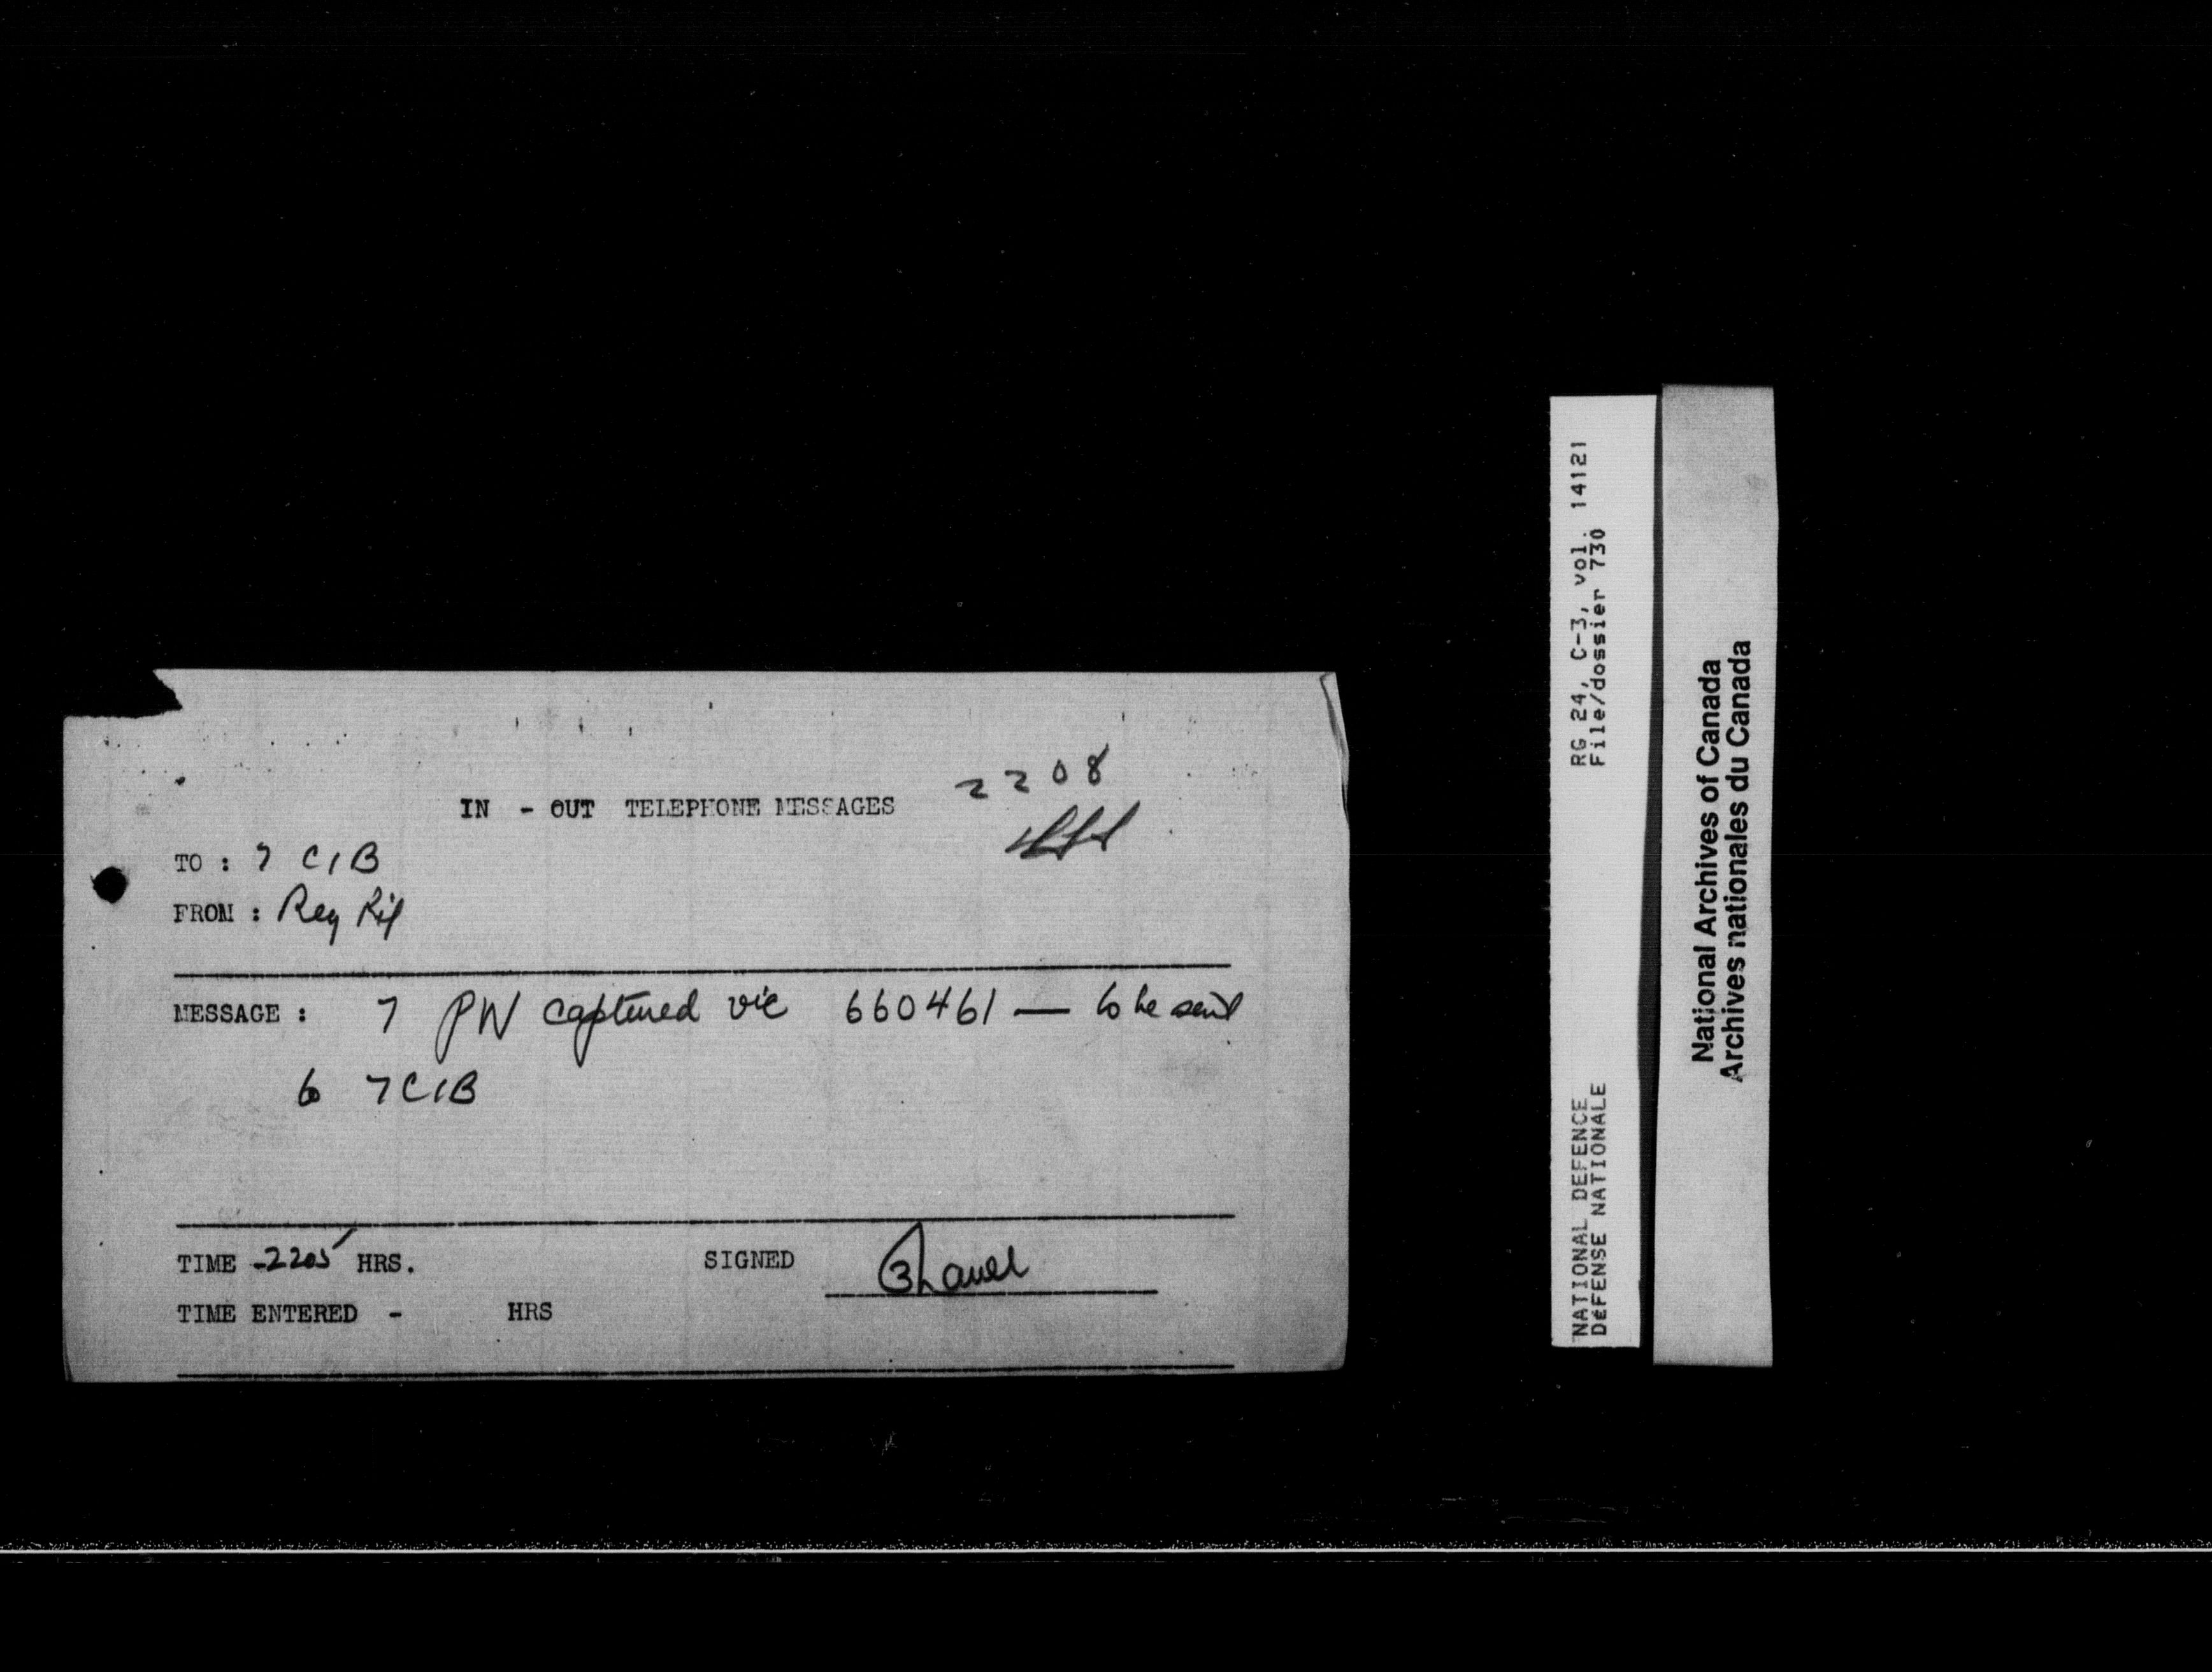 2208
IN - OUT TELEPHONE MESSAGES
TO : 7 CIB
FROM : Reg Rif
MESSAGE : 7 PW captured vic 660461 — to be sent
to 7 CIB
TIME - 2205 HRS. SIGNED
TIME ENTERED - HRS
RG 24, C-3, vol. 14121
File/dossier 730
NATIONAL DEFENCE
DéFENSE NATIONALE
National Archives of Canada
Archives nationales du Canada